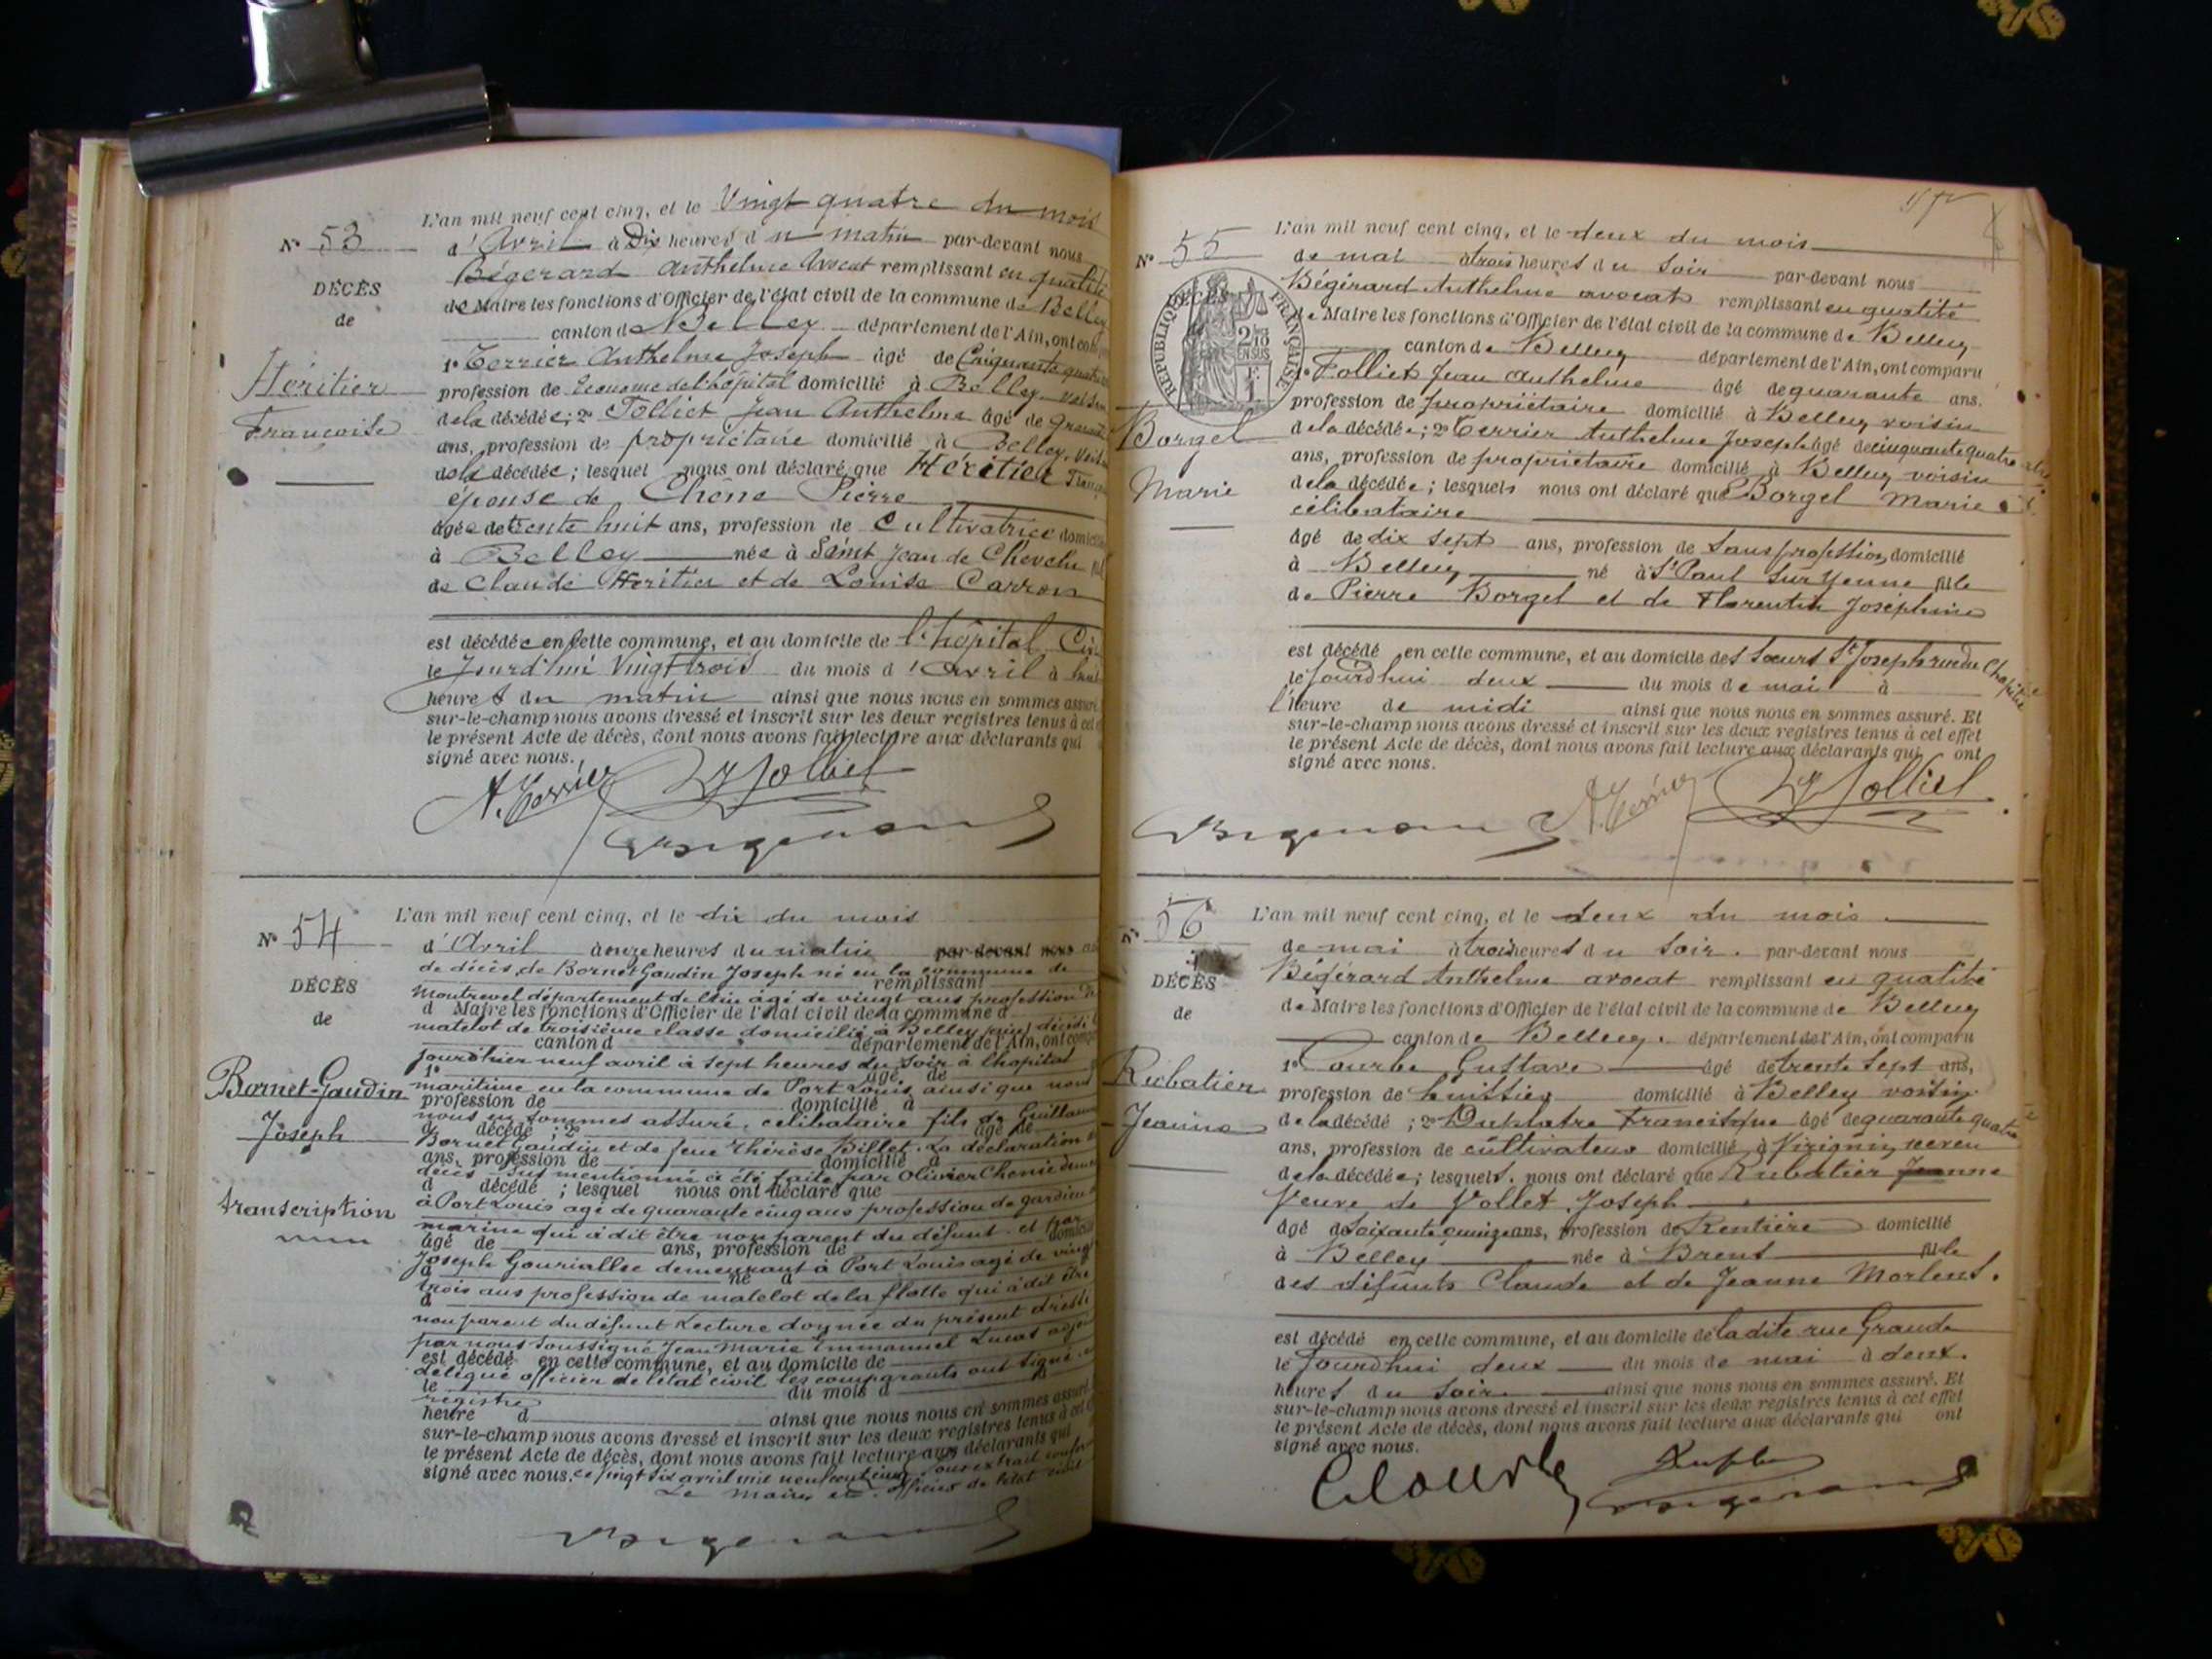 L'an mil neuf cent cinq, et le Vingt quatre du mois
N° 53
d'Avril à Dix heures du matin par-devant nous
DÉCÈS
Bégerard Anthelme Avocat remplissant en qualité
de
de Maire les fonctions d'Officier de l'état civil de la commune de Belley
canton de Belley département de l'Ain, ont
1° Terrier Anthelme Joseph âgé de Cinquante quatre
Héritier
profession de Econome de l'hôpital domicilié à Belley voisin
Francoise
de la décédée; 2° Folliet Jean Anthelme âgé de quarante
ans, profession de propriétaire domicilié à Belley, voisin
de la décédée; lesquel nous ont déclaré que Héritier
épouse de Chêne Pierre
âgée de trente huit ans, profession de Cultivatrice
à Belley née à Saint Jean de Chevelu
de Claude Héritier et de Louise Carron
est décédée en cette commune, et au domicile de l'hôpital
le Jourd'hui Vingt trois du mois d'Avril à huit
heures du matin ainsi que nous nous en sommes assuré
sur-le-champ nous avons dressé et inscrit sur les deux registres tenus à cet
le présent Acte de décès, dont nous avons fait lecture aux déclarants qui
signé avec nous.
A. Terrier Folliet
Bigerard
L'an mil neuf cent cinq, et le dix du mois
N° 54
d'Avril à onze heures du matin par-devant nous
de décès de Bornet Gaudin Joseph né en la commune de
remplissant
DÉCÈS
Montrevel département de l'Ain âgé de vingt ans profession de
d Maire les fonctions d'Officier de l'état civil de la commune d
de
matelot de troisième classe domicilié à Belley (Ain) décédé
canton d département de l'Ain, ont
jourd'hier neuf avril à sept heures du soir à l'hopital
1° âgé de
Bornet-Gaudin
maritime en la commune de Port Louis ainsi que nous
profession de domicilié à
nous en sommes assuré, celibataire fils de Guillaume
Joseph
d décédé; 2° âgé de
Bornet Gaudin et de feue Thérèse Billet. La déclaration
ans, profession de domicilié à
décès sus mentionné a été faite par Olivier
d décédé; lesquel nous ont déclaré que
transcription
à Port Louis agé de quarante cinq ans profession de gardien
marine qui a dit être non parent du défunt et par
âgé de ans, profession de domicilié
Joseph Gouriallec demeurant à Port Louis agé de vingt
à né à
trois ans profession de matelot de la flotte qui a dit être
d
non parent du défunt Lecture donnée du présent dressé
par nous soussigné Jean Marie Emmanuel Lucas
est décédé en cette commune, et au domicile de
délégué officier de l'état civil les comparants ont signé
le du mois d
registre
heure d ainsi que nous nous en sommes assuré
sur-le-champ nous avons dressé et inscrit sur les deux registres tenus à cet
le présent Acte de décès, dont nous avons fait lecture aux déclarants qui
signé avec nous. ce vingt six avril mil neuf cent cinq Pour extrait
Le Maire officier de l'état civil
Bigerard
L'an mil neuf cent cinq, et le deux du mois
N° 55
de mai à trois heures du soir par-devant nous
DÉCÈS
Bégérard Anthelme avocat remplissant en qualité
de Maire les fonctions d'Officier de l'état civil de la commune de Belley
RÉPUBLIQUE FRANÇAISE
canton de Belley département de l'Ain, ont comparu
1° Folliet Jean Anthelme âgé de quarante ans.
profession de propriétaire domicilié à Belley voisin
Borgel
de la décédée; 2° Terrier Anthelme Joseph âgé de cinquante quatre
ans, profession de propriétaire domicilié à Belley voisin
Marie
de la décédée; lesquels nous ont déclaré que Borgel Marie
célibataire
âgé de dix sept ans, profession de Sans profession, domicilié
à Belley né à St Paul sur Yenne fille
de Pierre Borgel et de Florentin Joséphine
est décédé en cette commune, et au domicile des Soeurs St Joseph rue du Chapitre
le Jourd'hui deux du mois de mai à
l'heure de midi ainsi que nous nous en sommes assuré. Et
sur-le-champ nous avons dressé et inscrit sur les deux registres tenus à cet effet
le présent Acte de décès, dont nous avons fait lecture aux déclarants qui ont
signé avec nous.
Bigerard A. Terrier Folliet
L'an mil neuf cent cinq, et le deux du mois
56
de mai à trois heures du soir. par-devant nous
DÉCÈS
Bégérard Anthelme avocat remplissant en qualité
de
de Maire les fonctions d'Officier de l'état civil de la commune de Belley
canton de Belley. département de l'Ain, ont comparu
Rubatier
1° Courbe Gustave âgé de trente sept ans,
profession de huissier domicilié à Belley voisin
Jeanne
de la décédé; 2° Duplatre Francisque âgé de quarante quatre
ans, profession de cultivateur domicilié à Virignin neveu
de la décédée; lesquels. nous ont déclaré que Rubatier Jeanne
Veuve de Vollet Joseph
âgé de soixante quinze ans, profession de Rentière domicilié
à Belley née à Brens fille
des défunts Claude et de Jeanne Morlens.
est décédé en cette commune, et au domicile de la dite rue Grande
le Jourd'hui deux du mois de mai à deux.
heures du soir. ainsi que nous nous en sommes assuré. Et
sur-le-champ nous avons dressé et inscrit sur les deux registres tenus à cet effet
le présent Acte de décès, dont nous avons fait lecture aux déclarants qui ont
signé avec nous.
Bigerard